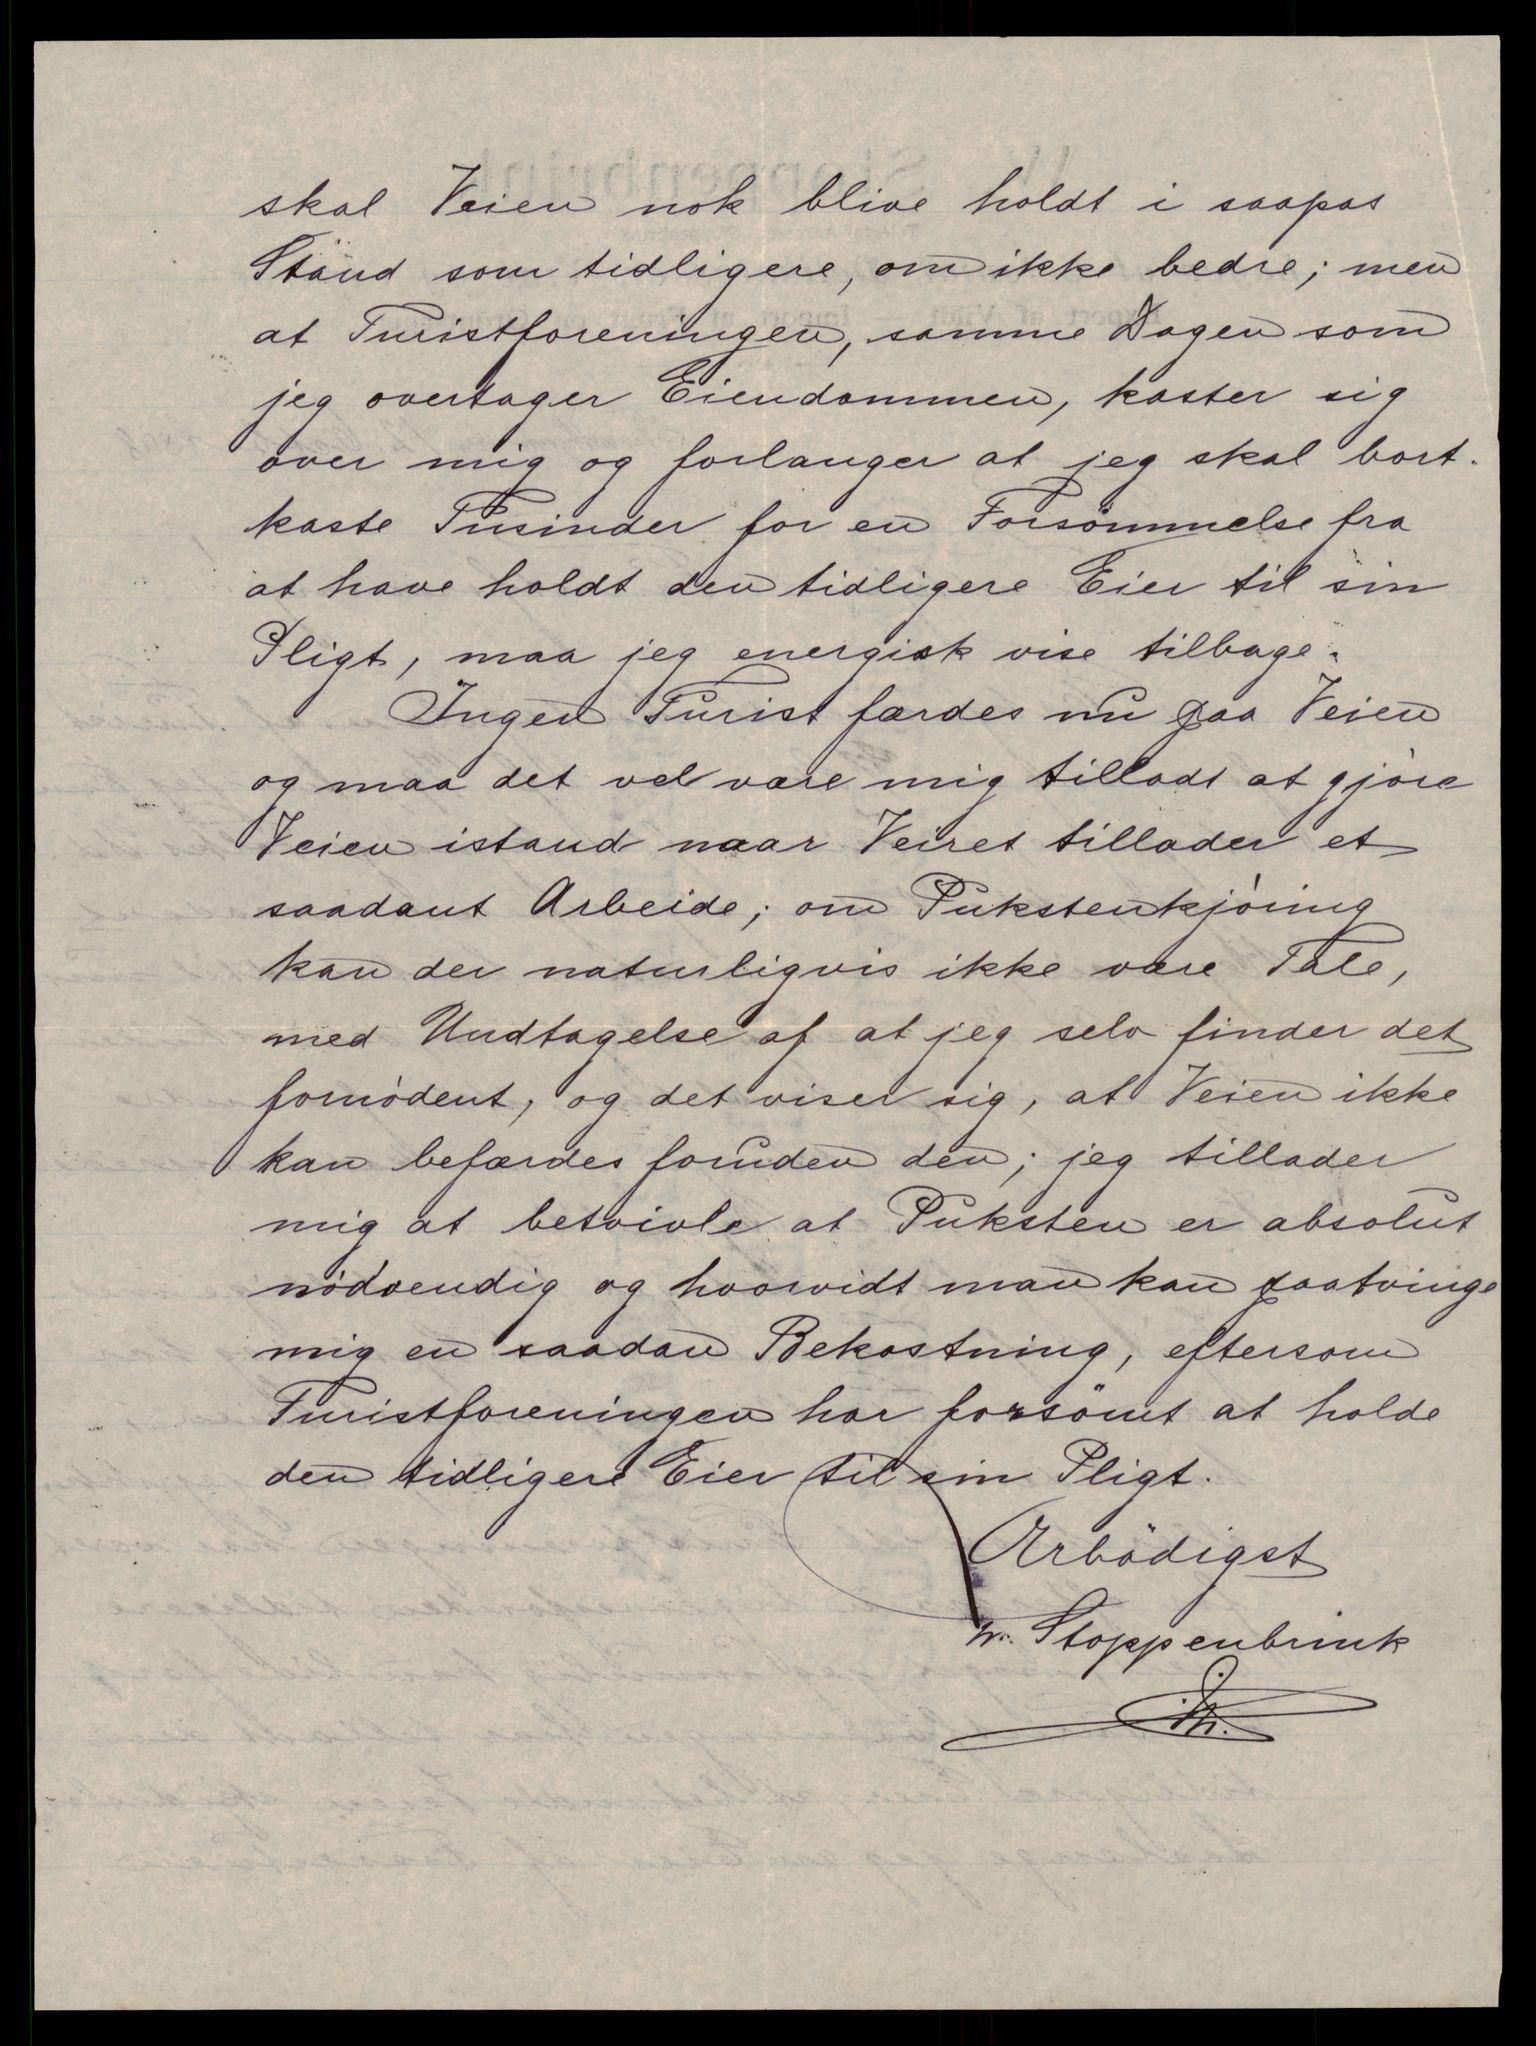 skal Veien nok blive holdt i saapas
Stand som tidligere, om ikke bedre; men
at Turistforeningen, samme Dagen som
jeg overtager Eiendommen, kaster sig
over mig og forlanger at jeg skal bort-
kaste Tusinder for en Forsömmelse fra
at have holdt den tidligere Eier til sin
Pligt, maa jeg energisk vise tilbage.
Ingen Turist færdes nu paa Veien
og maa det vel være mig tilladt at gjöre
Veien istand naar Veiret tillader et
saadant Arbeide; om Pukstenkjöring
kan der naturligvis ikke være Tale,
med Undtagelse af at jeg selv finder det
fornödent, og det viser sig, at Veien ikke
kan befærdes foruden den; jeg tillader
mig at betvivle at Puksten er absolut
nödvendig og hvorvidt man kan paatvinge
mig en saadan Bekostning, eftersom
Turistforeningen har forsömt at holde
den tidligere Eier til sin Pligt.
Ærbödigst
W. Stoppenbrink